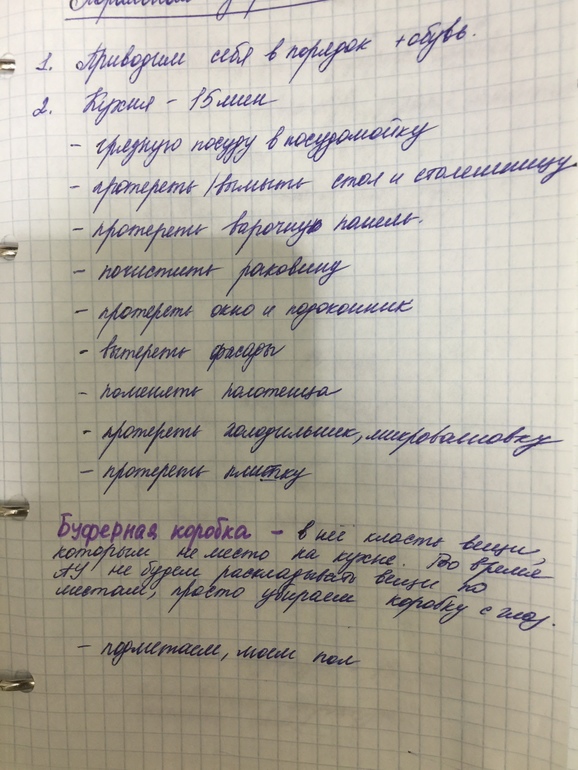 1. Приводим себя в порядок + обувь.
2. Кухня - 15 мин
- грязную посуду в посудомойку
- протереть / вымыть стол и столешницу
- протереть варочную панель.
- почистить раковину
- протереть окно и подоконник
- вытереть фасады
- поменять полотенца
- протереть холодильник, микроволновку
- протереть плитку
Буферная коробка - в неё класть вещи,
которым не место на кухне. Во время
АУ не будем раскладывать вещи по
местам, просто убираем коробку с глаз.
- подметаем, моем пол